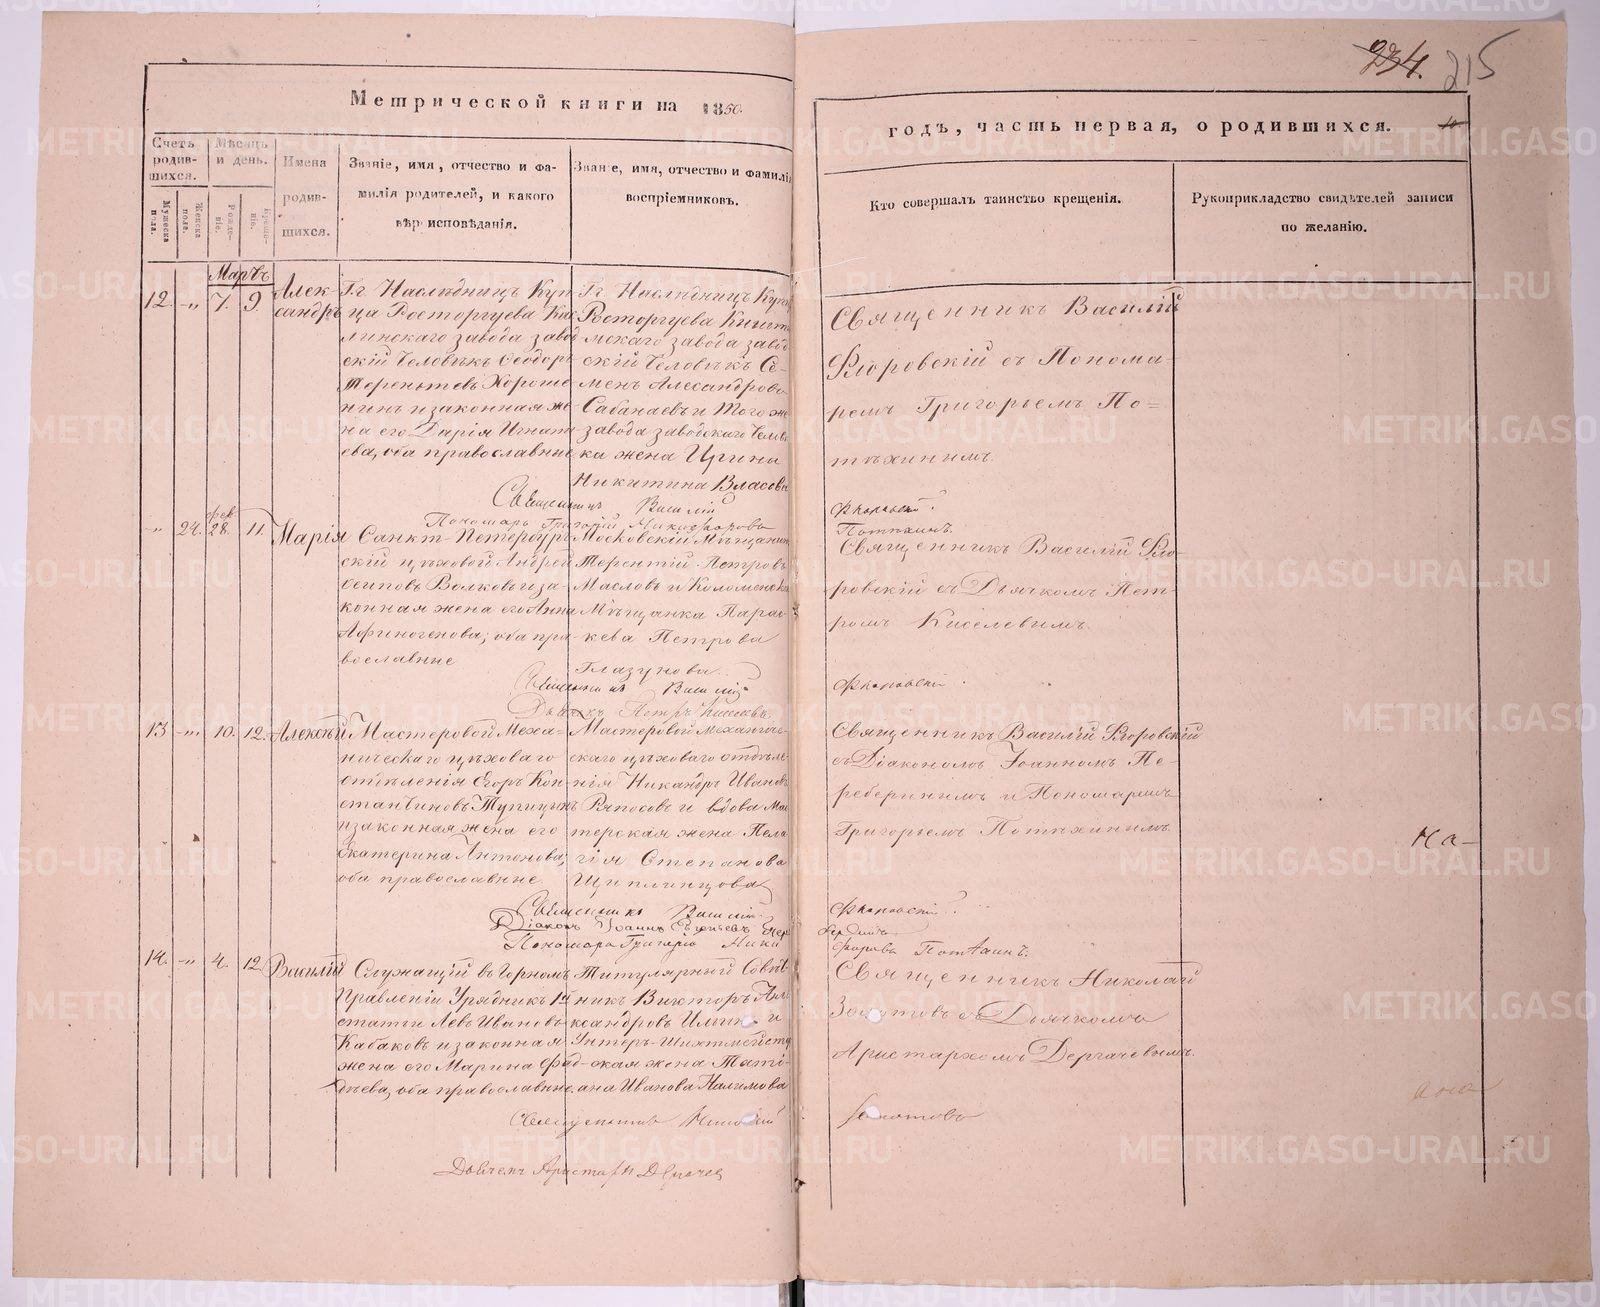 234. 215
Метрической книги на 1850.
годъ, часть первая, о родившихся.
Счетъ родившихся.
Мѣсяцъ и день.
Имена родившихся.
Званіе, имя, отчество и фамилія родителей, и какого вѣроисповѣданія.
Званіе, имя, отчество и фамилія воспріемниковъ.
Кто совершалъ таинство крещенія.
Рукоприкладство свидѣтелей записи по желанію.
Мужеска пола.
Женска пола.
Рожденіе.
Крещеніе.
Мартъ
12. -„ 7. 9.
Александръ
Гг Наслѣдницъ Куп
ца Росторгуева Кас
линскаго завода завод
скій человѣкъ Ѳеодоръ
Терентьевъ Хороше
нинъ и законная же
на его Дарія Игнать
ева, оба православные
Гг Наслѣдницъ Купц
Росторгуева Кышт
мскаго завода завод
скій человѣкъ Се-
менъ Алесандровъ
Сабанаевъ и того же
завода заводскаго челов
ка жена Ирина
Никитина Власова
Священникъ Василій
Флоровскій съ Понома-
ремъ Григорьемъ По=
тѣхинымъ.
Священникъ Василій Флоровскій.
Пономарь Григорій Никифоровъ Потѣхинъ.
-„ 24. фев 28. 11.
Марія
Санкт-Петербур
скій цѣховой Андрей
Осиповъ Волковъ и за-
конная жена его Анна
Афиногенова, оба пра-
вославные
Московскій Мѣщанин
Терентій Петровъ
Масловъ и Коломенска
Мѣщанка Парас
кева Петрова
Глазунова
Священникъ Василій Фло-
ровскій съ Дьячкомъ Пет-
ромъ Киселевымъ.
Священникъ Василій Флоровскій.
Дьячекъ Петръ Киселевъ
13 -„ 10. 12.
Алексѣй
Мастеровой Меха-
ническаго цѣховаго
отдѣленія Егоръ Кон-
стантиновъ Тупицынъ
и законная жена его
Екатерина Антонова,
оба православные.
Мастеровой Механиче-
скаго цѣховаго отдѣле-
нія Никандръ Ивановъ
Ряпосовъ и вдова Мас
терская жена Пела
гія Степанова
Щиплицова
Священникъ Василій Флоровскій
съ Діакономъ Іоанномъ Пе-
реберинымъ и Пономаремъ
Григорьемъ Потѣхинымъ.
Священникъ Василій Флоровскій.
Діаконъ Іоаннъ
Пономарь Григорій Никифоровъ Потѣхинъ.
На-
14. -„ 4. 12.
Василій
Служащій въ Горномъ
Правленіи Урядникъ 1й
статьи Левъ Ивановъ
Кабаковъ и законная
жена его Марина Фад-
дѣева, оба православные.
Титулярный Совѣт
никъ Викторъ Але
ксандровъ Ильинъ и
Унтеръ-Шихтмейстер
ская жена Тати-
ана Иванова Налимова
Священникъ Николай
Золотовъ съ Дьячкомъ
Аристархомъ Дергачевымъ.
Священникъ Николай Золотовъ
Дьячекъ Аристархъ Дергачев